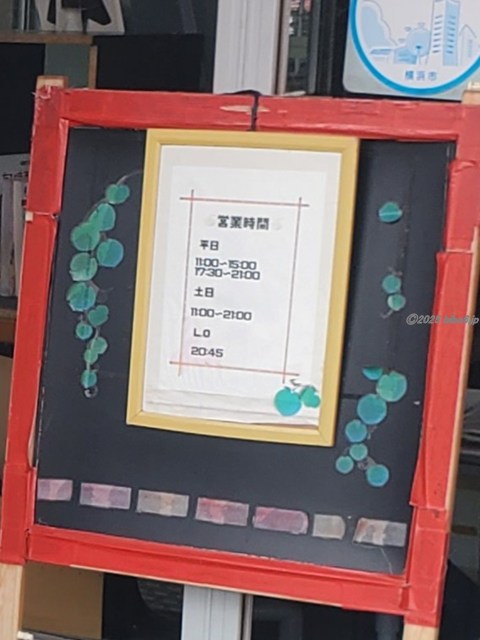 横浜市
営業時間
平日
11:00~15:00
17:30~21:00
土日
11:00~21:00
L.O
20:45